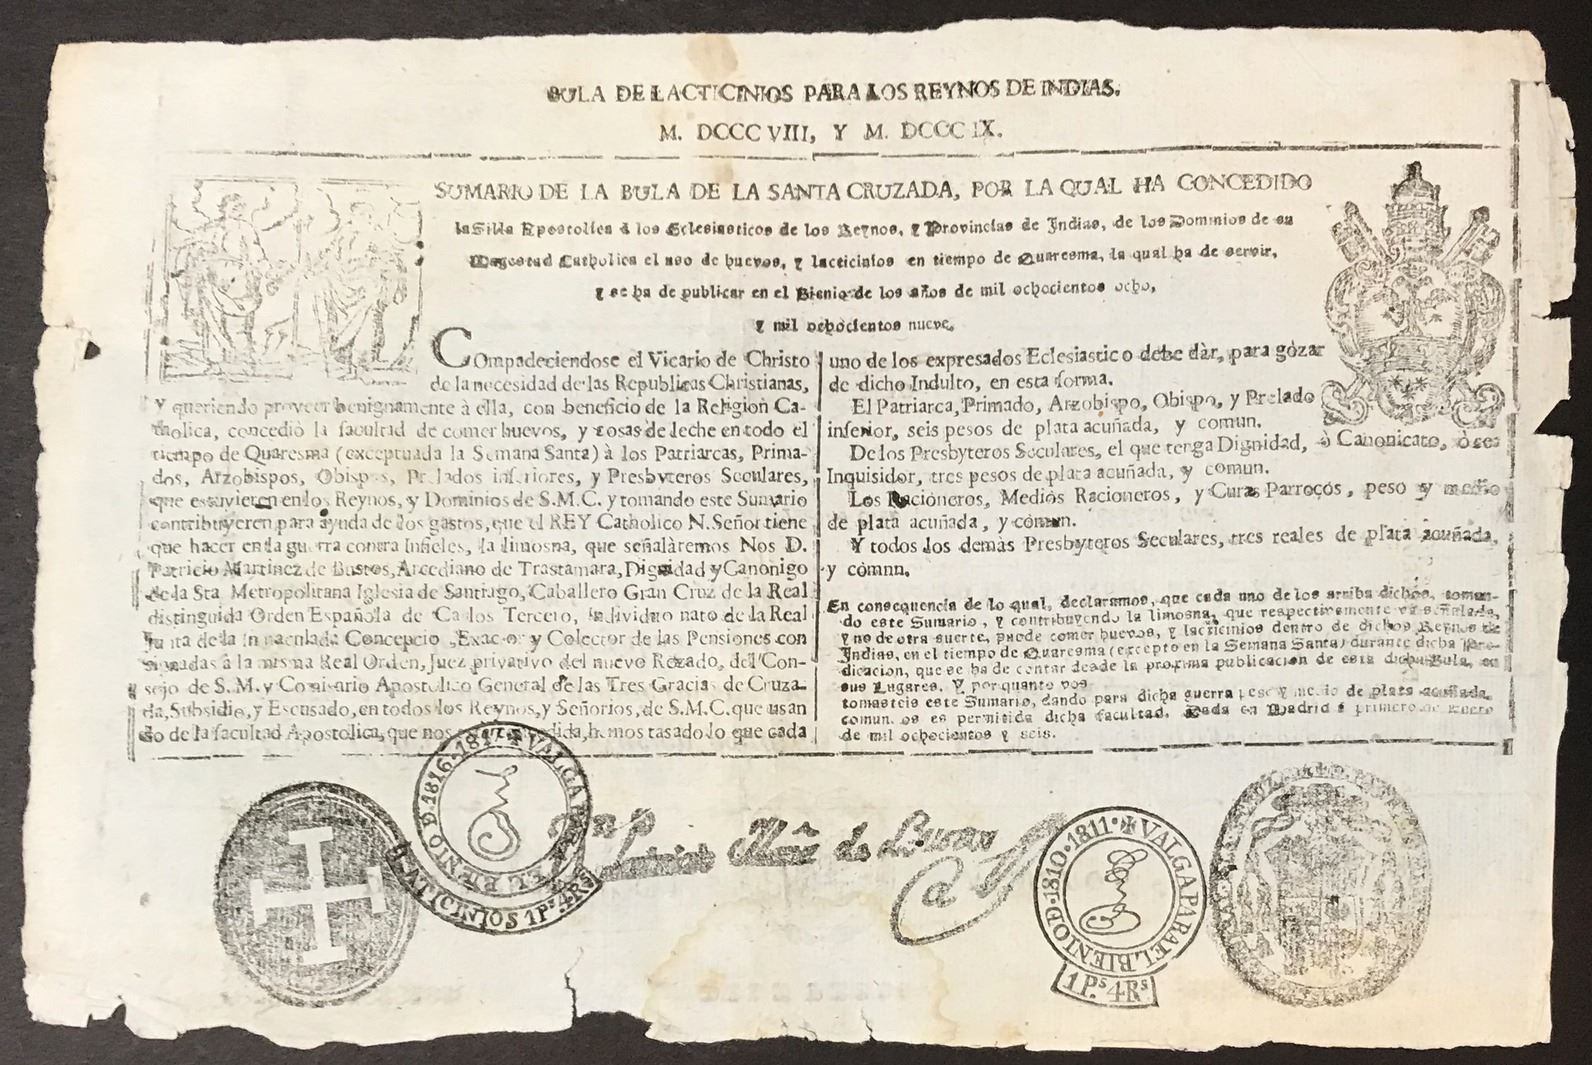 BULA DE LACTICINIOS PARA LOS REYNOS DE INDIAS.
M. DCCC VIII, Y M. DCCC IX.
SUMARIO DE LA BULA DE LA SANTA CRUZADA, POR LA QUAL HA CONCEDIDO
la Silla Apostolica á los Eclesiasticos de los Reynos, y Provincias de Indias, de los Dominios de su
Magestad Catholica el uso de huevos, y lacticinios en tiempo de Quaresma, la qual ha de servir,
y se ha de publicar en el Bienio de los años de mil ochocientos ocho,
y mil ochocientos nueve.
COmpadeciendose el Vicario de Christo
de la necesidad de las Republicas Christianas,
Y queriendo proveer benignamente à ella, con beneficio de la Religion Ca-
tholica, concediò la facultad de comer huevos, y cosas de leche en todo el
tiempo de Quaresma (exceptuada la Semana Santa) à los Patriarcas, Prima-
dos, Arzobispos, Obispos, Prelados inferiores, y Presbyteros Seculares,
que estuvieren en los Reynos, y Dominios de S.M.C. y tomando este Sumario
contribuyeren para ayuda de los gastos, que el REY Catholico N. Señor tiene
que hacer en la guerra contra Infieles, la limosna, que señalàremos Nos D.
Patricio Martinez de Bustos, Arcediano de Trastamara, Dignidad y Canonigo
de la Sta. Metropolitana Iglesia de Santiago, Caballero Gran Cruz de la Real
distinguida Orden Española de Carlos Tercero, individuo nato de la Real
Junta de la Inmaculada Concepcion, Exactor y Colector de las Pensiones con
signadas â la misma Real Orden, Juez privativo del nuevo Rezado, del Con-
sejo de S.M. y Comisario Apostolico General de las Tres Gracias de Cruza-
da, Subsidio, y Escusado, en todos los Reynos, y Señorios, de S.M.C. que usan
do de la facultad Apostolica, que nos dida, hemos tasado lo que cada
uno de los expresados Eclesiastico debe dàr, para gozar
de dicho Indulto, en esta forma.
El Patriarca, Primado, Arzobispo, Obispo, y Prelado
inferior, seis pesos de plata acuñada, y comun.
De los Presbyteros Seculares, el que tenga Dignidad, ò Canonicato, ò sea
Inquisidor, tres pesos de plata acuñada, y comun.
Los Racioneros, Medios Racioneros, y Curas Parrocos, peso y medio
de plata acuñada, y comun.
Y todos los demàs Presbyteros Seculares, tres reales de plata acuñada,
y comun.
En consequencia de lo qual, declaramos, que cada uno de los arriba dichos, toman-
do este Sumario, y contribuyendo la limosna, que respectivamente va señalada,
y no de otra suerte, puede comer huevos, y lacticinios dentro de dichos Reynos de
Indias, en el tiempo de Quaresma (excepto en la Semana Santa) durante dicha Pre-
dicacion, que se ha de contar desde la proxima publicacion de esta dicha Bula, en
sus Lugares. Y por quanto vos
tomasteis este Sumario, dando para dicha guerra peso y medio de plata acuñada,
comun. os es permitida dicha facultad. Dada en Madrid á primero de Enero
de mil ochocientos y seis.
VALGA PARA EL BIENIO D 1816. 1817.
LACTICINIOS 1 Ps. 4 Rs
VALGA PARA EL BIENIO D 1810. 1811.
1 Ps. 4 Rs